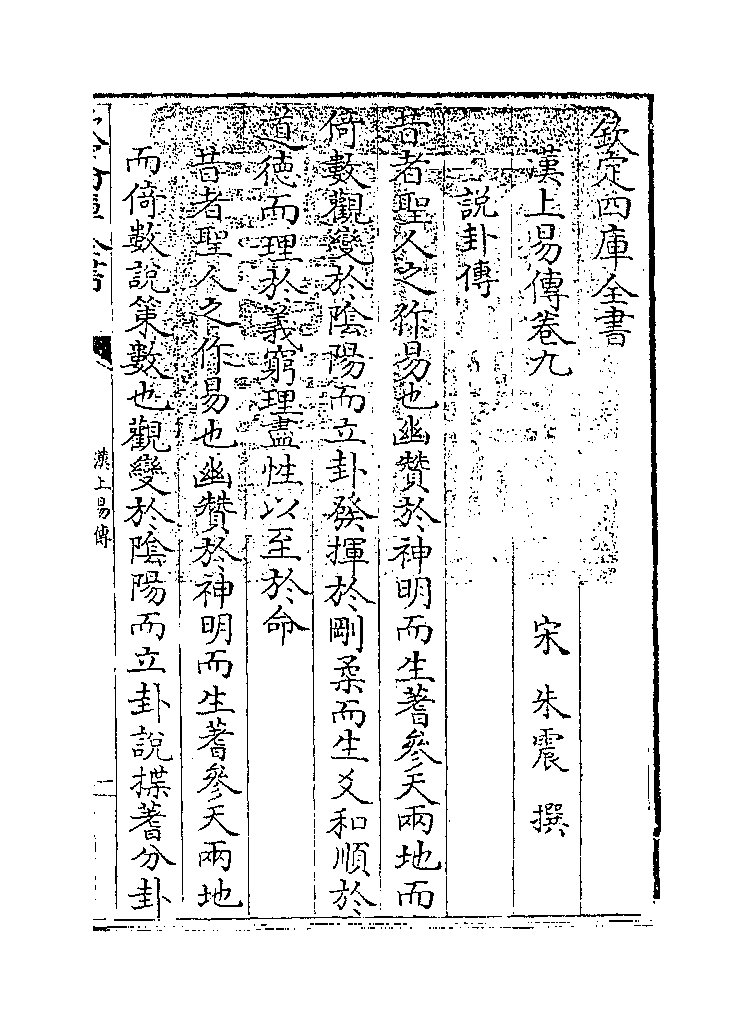 欽定四庫全書
漢上易傳卷九
宋 朱震 撰
說卦傳
昔者聖人之作易也幽賛於神明而生蓍參天兩地而
倚數觀變於陰陽而立卦發揮於剛柔而生爻和順於
道德而理於義窮理盡性以至於命
昔者聖人之作易也幽賛於神明而生蓍參天兩地
而倚數說策數也觀變於陰陽而立卦說揲蓍分卦
漢上易傳